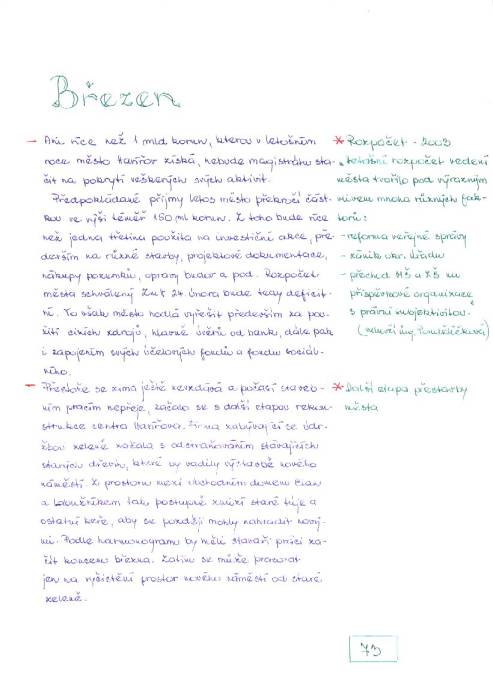 Březen
- Ani více než 1 mld korun, kterou v letošním
roce město Havířov získá, nebude magistrátu sta-
čit na pokrytí veškerých svých aktivit.
Předpokládané příjmy letos město překročí část-
kou ve výši téměř 150 ml korun. Z toho bude více
než jedna třetina použita na investiční akce, pře-
devším na různé stavby, projektové dokumentace,
nákupy pozemků, opravy budov a pod. Rozpočet
města schválený ZmH 24. února bude tedy deficit-
ní. To však město hodlá vyřešit především za po-
užití cizích zdrojů, hlavně úvěrů od bank, dále pak
i zapojením svých účelových fondů a fondu sociál-
ního.
- Přestože se zima ještě nevzdává a počasí staveb-
ním pracím nepřeje, začalo se s další etapou rekon-
strukce centra Havířova. Firma zabývající se údr-
žbou zeleně začala s odstraňováním stávajících
starých dřevin, které by vadily výstavbě nového
náměstí. Z prostoru mezi obchodním domem Elan
a Labužníkem tak postupně zmizí staré túje a
ostatní keře, aby se později mohly nahradit nový-
mi. Podle harmonogramu by měli stavaři práci za-
čít koncem března. Zatím se může pracovat
jen na vyčištění prostor nového náměstí od staré
zeleně.
* Rozpočet - 2003
Letošní rozpočet vedení
města tvořilo pod výrazným
vlivem mnoha různých fak-
torů:
- reforma veřejné správy
- zánik okr. úřadu
- přechod MŠ a ZŠ na
příspěvkové organizace
s právní subjektivitou
(hovoří ing.
* Další etapa přestavby
města
73